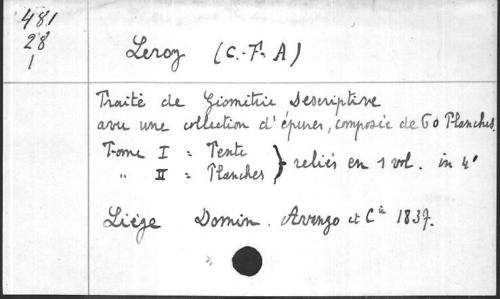 481
28
1
Leroy (C.-F. A)
Traité de Géométrie Descriptive
avec une collection d'épures, composée de 60 Planches.
Tome I = Texte
" II = Planches } reliés en 1 vol. in 4°
Liège Domin. Avanzo et Cie 1837.